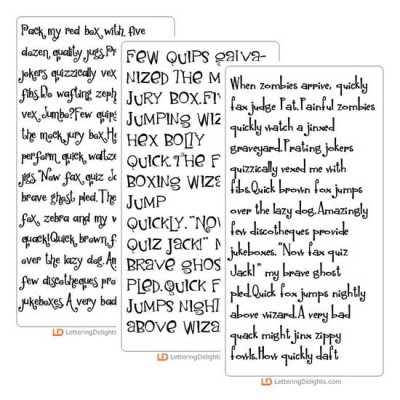 Pack my red box with five
dozen quality jugs.Pr
jokers quizzically vex
fibs.Do wafting zeph
vex Jumbo?Few quip
the mock jury box.H
perform quick waltze
jigs."Now fax quiz J
brave ghost pled.The
fox, zebra and my w
quack!Quick brown f
over the lazy dog.Am
few discotheques pro
jukeboxes.A very bad
LetteringDelights.com
Few quips galva-
nized the m
jury box.Fiv
jumping wiz
hex bolty
quick.The f
boxing wiza
jump
quickly."Nov
quiz Jack!" m
brave ghos
pled.Quick f
jumps night
above wiza
LD LetteringDelights
When zombies arrive, quickly
fax judge Pat.Painful zombies
quickly watch a jinxed
graveyard.Prating jokers
quizzically vexed me with
fibs.Quick brown fox jumps
over the lazy dog.Amazingly
few discotheques provide
jukeboxes. "Now fax quiz
Jack!" my brave ghost
pled.Quick fox jumps nightly
above wizard.A very bad
quack might jinx zippy
fowls.How quickly daft
LD LetteringDelights.com